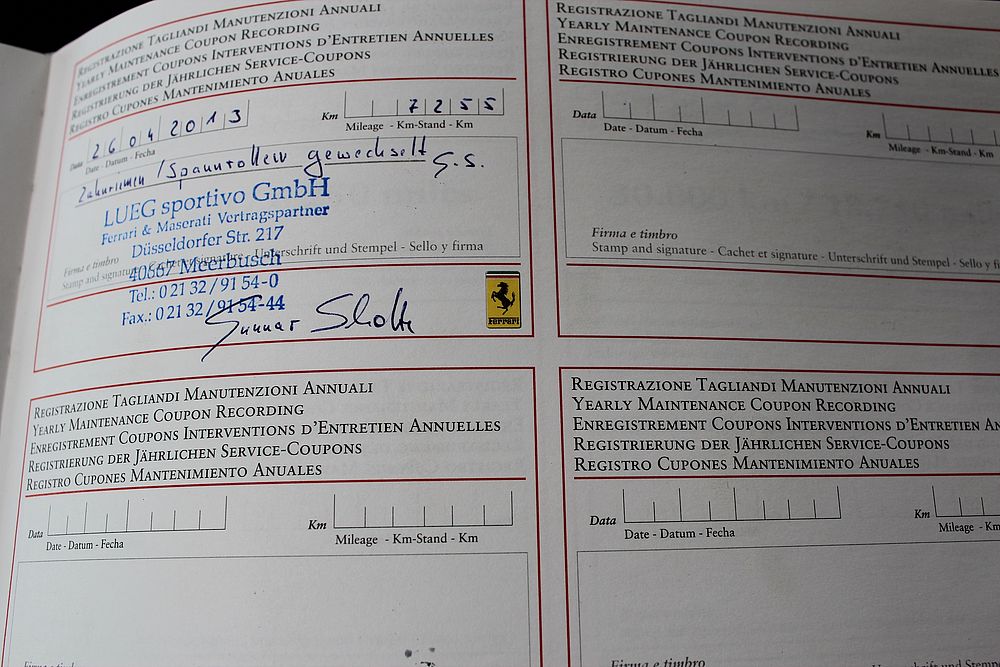 REGISTRAZIONE TAGLIANDI MANUTENZIONI ANNUALI
YEARLY MAINTENANCE COUPON RECORDING
ENREGISTREMENT COUPONS INTERVENTIONS D'ENTRETIEN ANNUELLES
REGISTRIERUNG DER JÄHRLICHEN SERVICE-COUPONS
REGISTRO CUPONES MANTENIMIENTO ANUALES
Data 26042013
Date - Datum - Fecha
Km 7255
Mileage - Km-Stand - Km
Zahnriemen / Spannrollen gewechselt G.S.
LUEG sportivo GmbH
Ferrari & Maserati Vertragspartner
Düsseldorfer Str. 217
40667 Meerbusch
Tel.: 0 21 32 / 91 54-0
Fax.: 0 21 32 / 91 54-44
Firma e timbro
Stamp and signature - Cachet et signature - Unterschrift und Stempel - Sello y firma
Gunnar
Ferrari
REGISTRAZIONE TAGLIANDI MANUTENZIONI ANNUALI
YEARLY MAINTENANCE COUPON RECORDING
ENREGISTREMENT COUPONS INTERVENTIONS D'ENTRETIEN ANNUELLES
REGISTRIERUNG DER JÄHRLICHEN SERVICE-COUPONS
REGISTRO CUPONES MANTENIMIENTO ANUALES
Data
Date - Datum - Fecha
Km
Mileage - Km-Stand - Km
Firma e timbro
Stamp and signature - Cachet et signature - Unterschrift und Stempel - Sello y fi
REGISTRAZIONE TAGLIANDI MANUTENZIONI ANNUALI
YEARLY MAINTENANCE COUPON RECORDING
ENREGISTREMENT COUPONS INTERVENTIONS D'ENTRETIEN ANNUELLES
REGISTRIERUNG DER JÄHRLICHEN SERVICE-COUPONS
REGISTRO CUPONES MANTENIMIENTO ANUALES
Data
Date - Datum - Fecha
Km
Mileage - Km-Stand - Km
REGISTRAZIONE TAGLIANDI MANUTENZIONI ANNUALI
YEARLY MAINTENANCE COUPON RECORDING
ENREGISTREMENT COUPONS INTERVENTIONS D'ENTRETIEN AN
REGISTRIERUNG DER JÄHRLICHEN SERVICE-COUPONS
REGISTRO CUPONES MANTENIMIENTO ANUALES
Data
Date - Datum - Fecha
Km
Mileage - Km
Firma e timbro